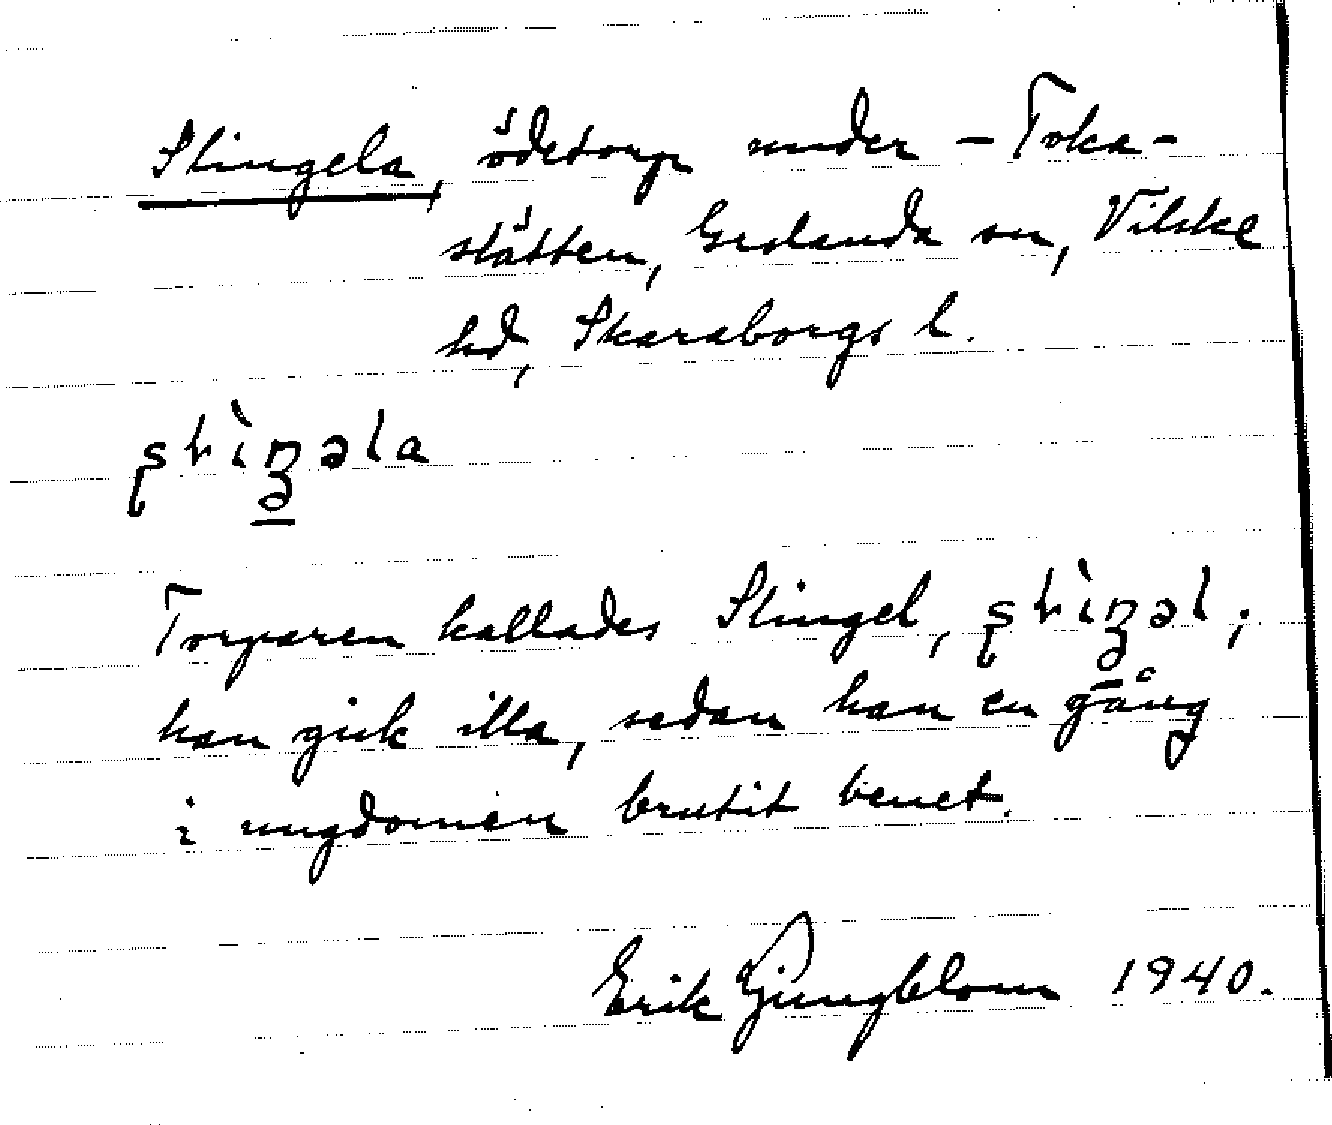 Slingela, ödetorp under – Toka-
slätten, Grolanda sn, Vilske
hd, Skaraborgs l.
ʂɽìŋəla
Torparen kallades Slingel, ʂɽìŋəl;
han gick illa, sedan han en gång
i ungdomen brutit benet.
Erik Ljungblom 1940.